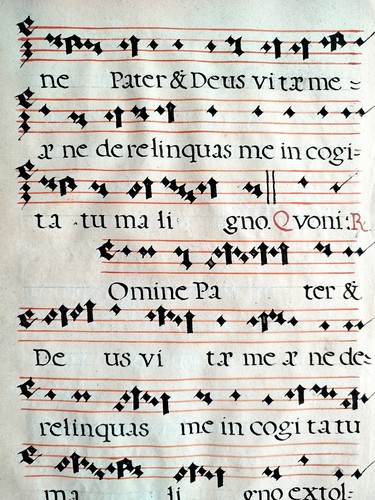 ne Pater & Deus vi tæ me =
æ ne derelinquas me in cogi=
ta tu ma li gno. Quoni: R
Omine Pa ter &
De us vi tæ me æ ne de=
relinquas me in cogi ta tu
ma li gno extol=